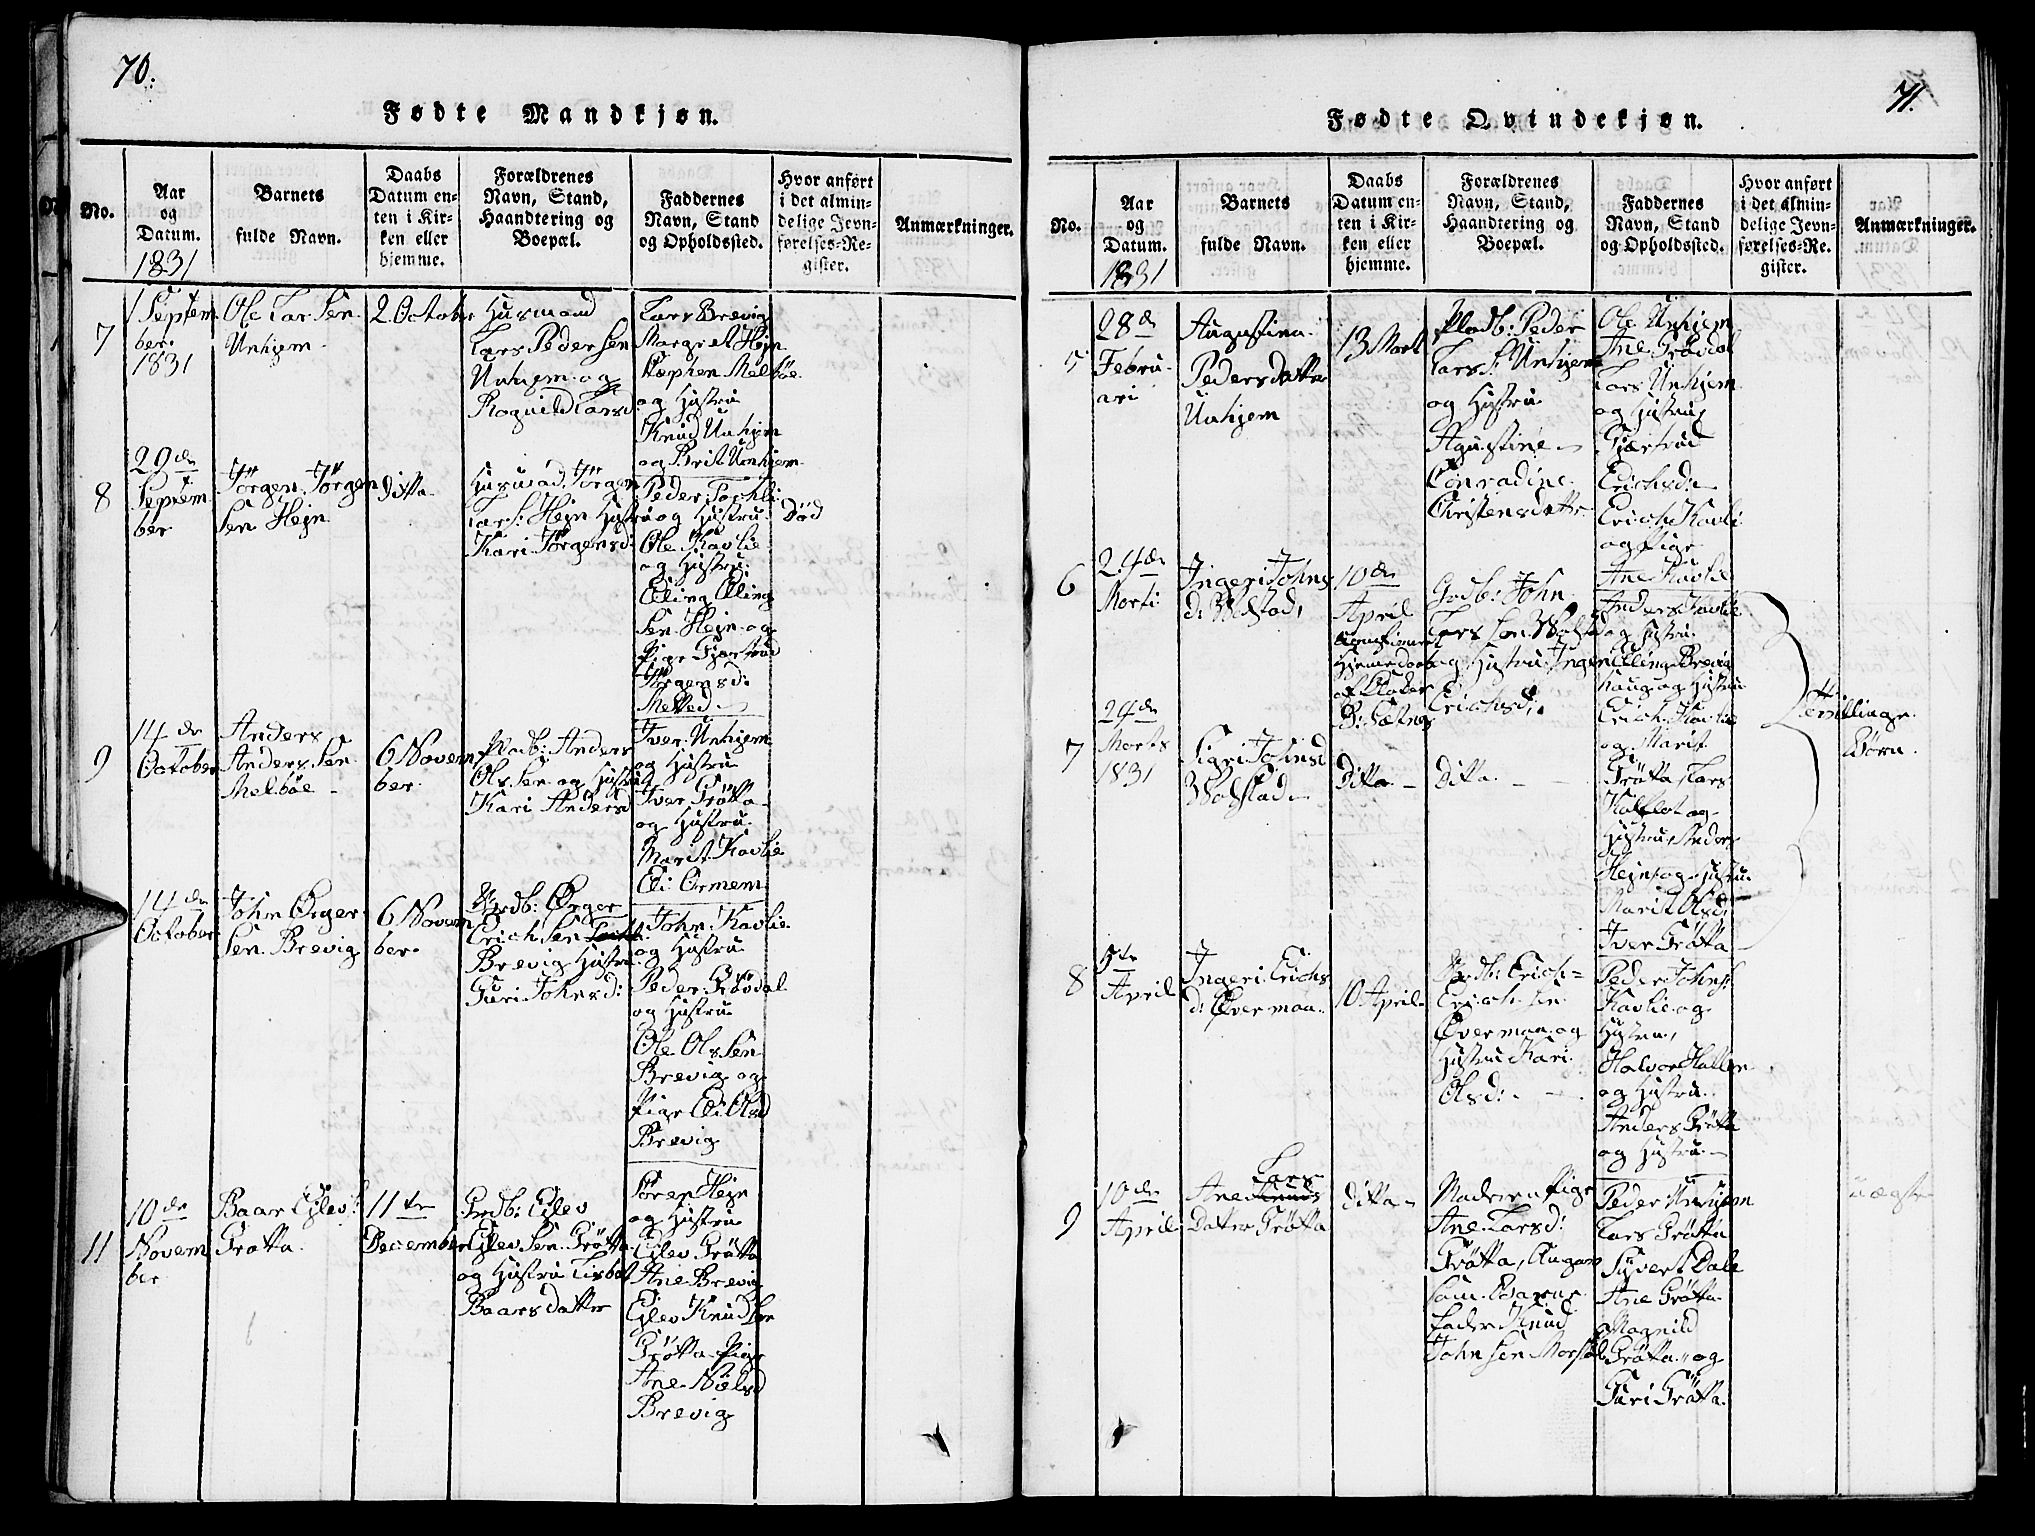 70.
Fødte Mandkjøn.
No.
Aar
og
Datum.
1831
Barnets
fulde Navn.
Daabs
Datum en-
ten i Kir-
ken eller
hjemme.
Forældrenes
Navn, Stand,
Haandtering og
Boepæl.
Faddernes
Navn, Stand
og Opholdssted.
Hvor anført
i det almin-
delige Jevn-
førelses-Re-
gister.
Anmærkninger.
7
1 Septem
ber.
1831
Ole Lar Sen
Unhjem
2 October
Husmand
Lars Peder Sen
Unhjem og
Ragnild Larsd:
Lars Brevig
Margret Hejn
Stephen Melbøe
og Hustru
Knud Unhjem
og Brit Unhjem
8
29de
Septem
ber
Jørgen Jørgen
Sen Hejn
ditto
Jørgen
Lars: Hejn Hustru
Kari Jørgensd:
Peder
og Hustru
Ole Kavlie
og Hustru
Elling Elling
Sen Hejn og
Pige Gjertrud
Jørgensd:
Død
9
14de
October
Anders
Anders Sen
Melbøe
6 Novem
ber
Anders
Ols Sen og Hustru
Kari Andersd
Iver Unhjem
og Hustru
Iver Grøtta
og Hustru
Marit Kavlie
Eli Ormem
14de
October
John Ørger
Sen Brevig
6 Novem
ber
Grdb: Ørger
Erich Sen
Brevig Hustru
Guri Johnsd:
John Kavlie
og Hustru
Peder Grøvdal
og Hustru
Ole Ols Sen
Brevig og
Pige Eli Olsd
Brevig
11
10de
Novem
ber
Baar Ejlevs:
Grøtta
11te
December
Grdb: Ejlev
Ejlev Sen Grøtta
og Hustru Lisbet
Baarsdatter
Søren Hejn
og Hustru
Ejlev Grøtta
Ane Brevig
Ejlev Knud Sen
Grøtta Pige
Ane Nielsd
Brevig
71.
Fødte Qvindekjøn.
No.
Aar
og
Datum.
1831
Barnets
fulde Navn.
Daabs
Datum en-
ten i Kir-
ken eller
hjemme.
Forældrenes
Navn, Stand,
Haandtering og
Boepæl.
Faddernes
Navn, Stand
og Opholdssted.
Hvor anført
i det almin-
delige Jevn-
førelses-Re-
gister.
Anmærkninger.
5
28de
Febru-
ari
Augustina
Pedersdatter
Unhjem
13 Marti
Pladb: Peder
Lars S: Unhjem
og Hustru
Agustine
Conradine
Christensdatter
Ole Unhjem
Ane Grøvdal
Lars Unhjem
og Hustru
Gjertrud
Erichsd
Erich Kavli
og Pige
Ane Kavlie
6
24de
Marti
Ingeri Johns
d: Wolstad
10de
April
Hjemmedaab
af
Grdb: John
Lars Sen Wolstad
og Hustru Ingeri
Erichsd:
Anders Kavlie
og Hustru
Elling Brevig
og Hustru
Erich Kavlie
og Marit
Grøtta, Lars
og
Hustru, Anders
Hejn og Hustru
Marit Olsd:
Iver Grøtta
Tvillinge
Børn.
7
24de
Marts
1831
Sigri Johnsd
Wolstad
Ditto
ditto
8
5te
April
Ingeri Erichs
d: Øverman
10 April
Grdb: Erich
Erich Sen
Øverman og
Hustru Kari
Olsd:
Peder Johns:
Kavlie og
Hustru,
Halvor
og Hustru
Anders Grøtta
og Hustru
9
10de
April
Lars
Ane Knuds
Datter Grøtta
ditto
Moderen Pige
Ane Larsd:
Grøtta, Angav
som Barne
fader Knud
John Sen
Peder Unhjem
Lars Grøtta
Syvert Dale
Ane Grøtta
Magnild
Grøtta og
Guri Grøtta
uægte